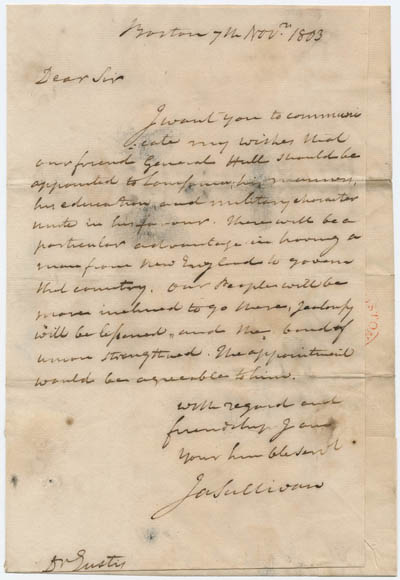 Boston 7th Novr. 1803
Dear Sir
I want you to communi
cate my wishes that
our friend General Hull should be
appointed to Louisiana, his manners,
his education, and military character
unite in his favour. There will be a
particular advantage in having a
man from New England to govern
that country. Our Peoples will be
more inclined to go there, Jealousy
will be lessened, and the band of
union strengthened. The appointment
would be agreeable to him.
with regard and
friendship I am
Your humble Servt
Ja Sullivan
Dr Eustis